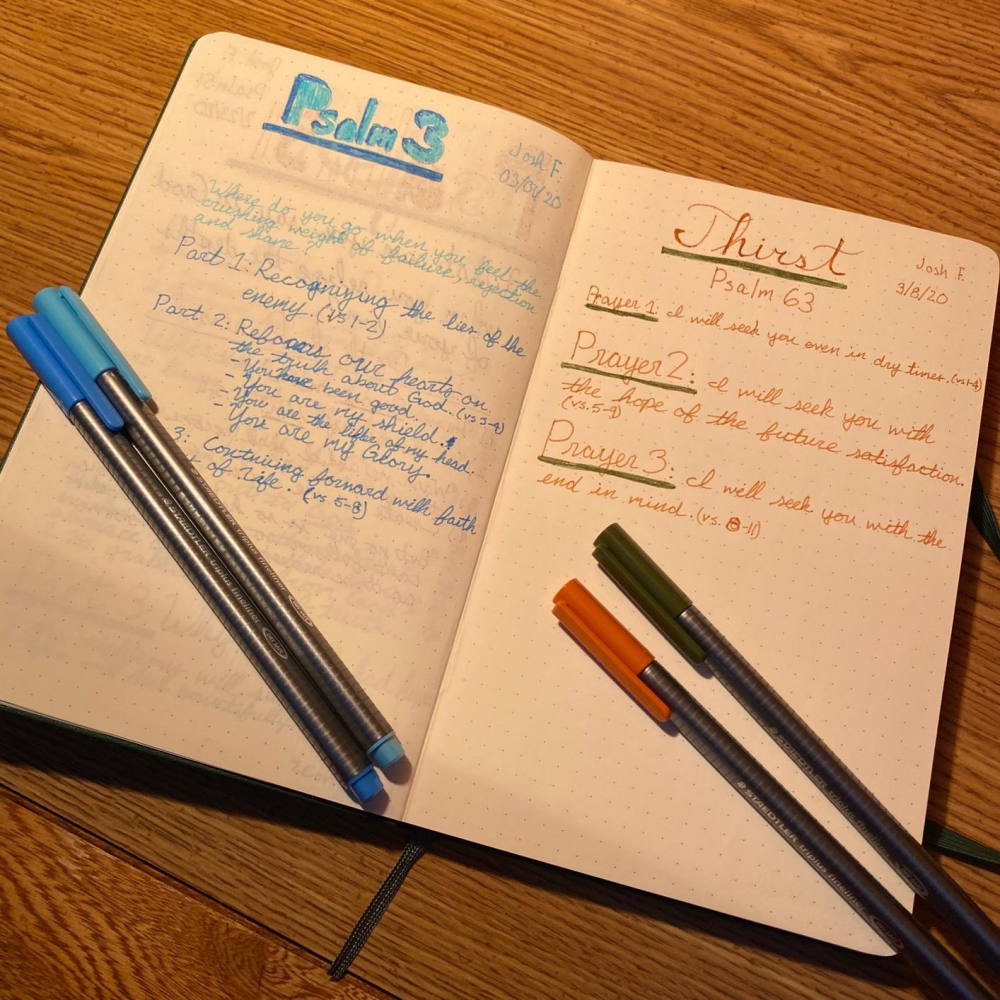 Psalm 3
Josh F.
03/01/20
Where do you go when you feel the
crushing weight of failure, rejection
and shame?
Part 1: Recognizing the lies of the
enemy. (vs 1-2)
Part 2: our hearts on
the truth about God. (vs 3-4)
- You have been good
- You are my shield.
- You are the lifter of my head.
- You are my Glory.
3: Continuing forward with faith
of Life. (vs 5-8)
Thirst
Psalm 63
Josh F.
3/8/20
Prayer 1: I will seek you even in dry times. (vs 1-4)
Prayer 2: I will seek you with
the hope of the future satisfaction.
(vs. 5-9)
Prayer 3: I will seek you with the
end in mind. (vs. -11)
STAEDTLER triplus fineliner
STAEDTLER triplus fineliner
STAEDTLER triplus fineliner
STAEDTLER triplus fineliner